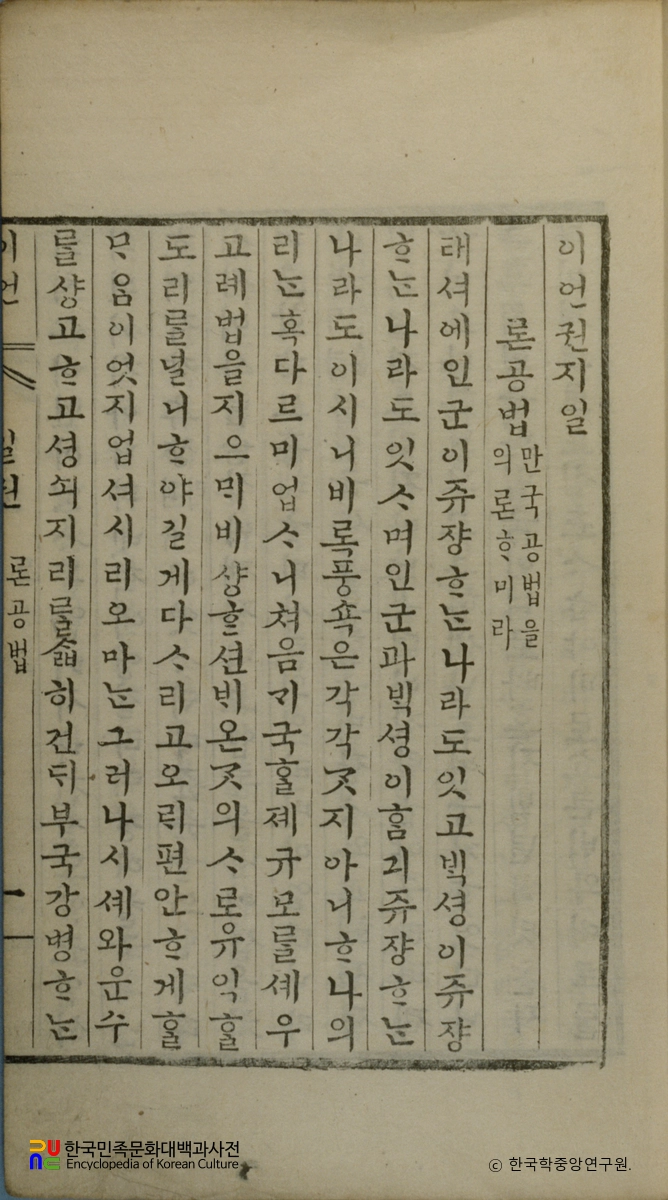 이언권지일
론공법
만국공법을
의론ᄒᆞ미라
태셔에인군이쥬쟝ᄒᆞᄂᆞᆫ나라도잇고ᄇᆡᆨ셩이쥬쟝
ᄒᆞᄂᆞᆫ나라도잇ᄉᆞ며인군과ᄇᆡᆨ셩이ᄒᆞᆷ긔쥬쟝ᄒᆞᄂᆞᆫ
나라도이시니비록풍쇽은각각ᄀᆞᆺ지아니ᄒᆞ나의
리ᄂᆞᆫ혹다르미업ᄉᆞ니쳐음ᄀᆡ국ᄒᆞᆯ졔규모를셰우
고례법을지으ᄆᆡ비샹ᄒᆞᆫ션ᄇᆡ온ᄀᆞᆺ의ᄉᆞ로유익ᄒᆞᆯ
도리를널니ᄒᆞ야길게다ᄉᆞ리고오ᄅᆡ편안ᄒᆞ게ᄒᆞᆯ
ᄆᆞ음이엇지업셔시리오마ᄂᆞᆫ그러나시셰와운수
를샹고ᄒᆞ고셩쇠지리를ᄉᆞᆲ히건ᄃᆡ부국강병ᄒᆞᄂᆞᆫ
이언
일권
론공법
一
한국민족문화대백과사전
Encyclopedia of Korean Culture
ⓒ 한국학중앙연구원.